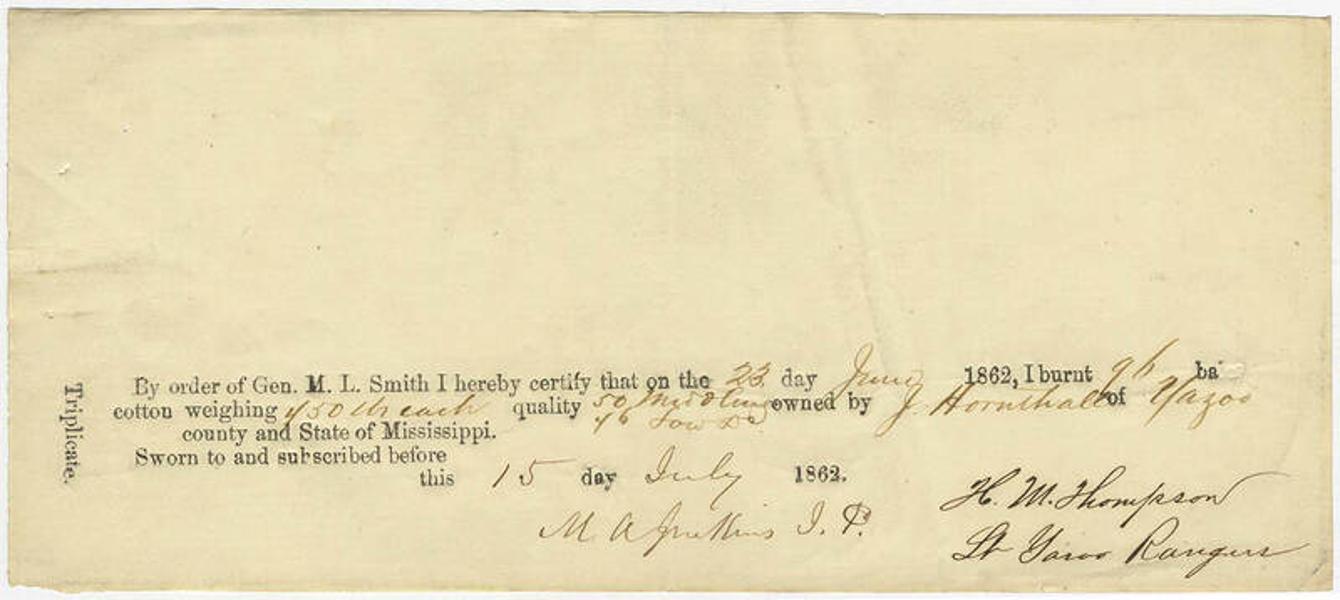 Triplicate.
By order of Gen. M. L. Smith I hereby certify that on the 23 day June 1862, I burnt 96 ba
cotton weighing 450 lbs each quality 50 Middling owned by J. Hornthall of Yazoo
46 Low Do
county and State of Mississippi.
Sworn to and subscribed before
this 15 day July 1862.
H. M. Thompson
M A Jenkins J. P.
Lt Yazoo Rangers